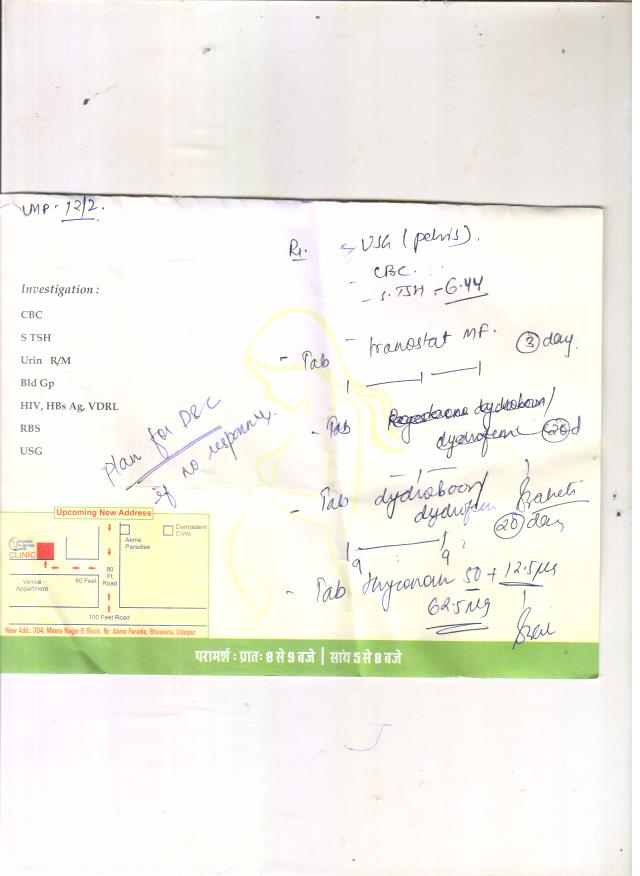 LMP - 12/2.
R.
USG (pelvis).
CBC.
- S. TSH - 6.44
Investigation :
CBC
S TSH
Urin R/M
Bld Gp
HIV, HBs Ag, VDRL
RBS
USG
- Tab - tranostat MF. 3 day.
- Tab dydroboon/
dydrofeme 20 d
Plan for D&C
if no response.
- Tab dydroboon/
dydrofem 20 day
- Tab thyronorm 50 + 12.5µg
62.5µg
Upcoming New Address
CLINIC
Akme Paradise
Dermadent Clinic
Venice Appartment
60 Feet
80 Ft Road
100 Feet Road
New Add.: 304, Meera Nagar-B Block, Nr. Akme Paradis, Bhuwana, Udaipur
परामर्श : प्रातः 8 से 9 बजे | सांय 5 से 8 बजे